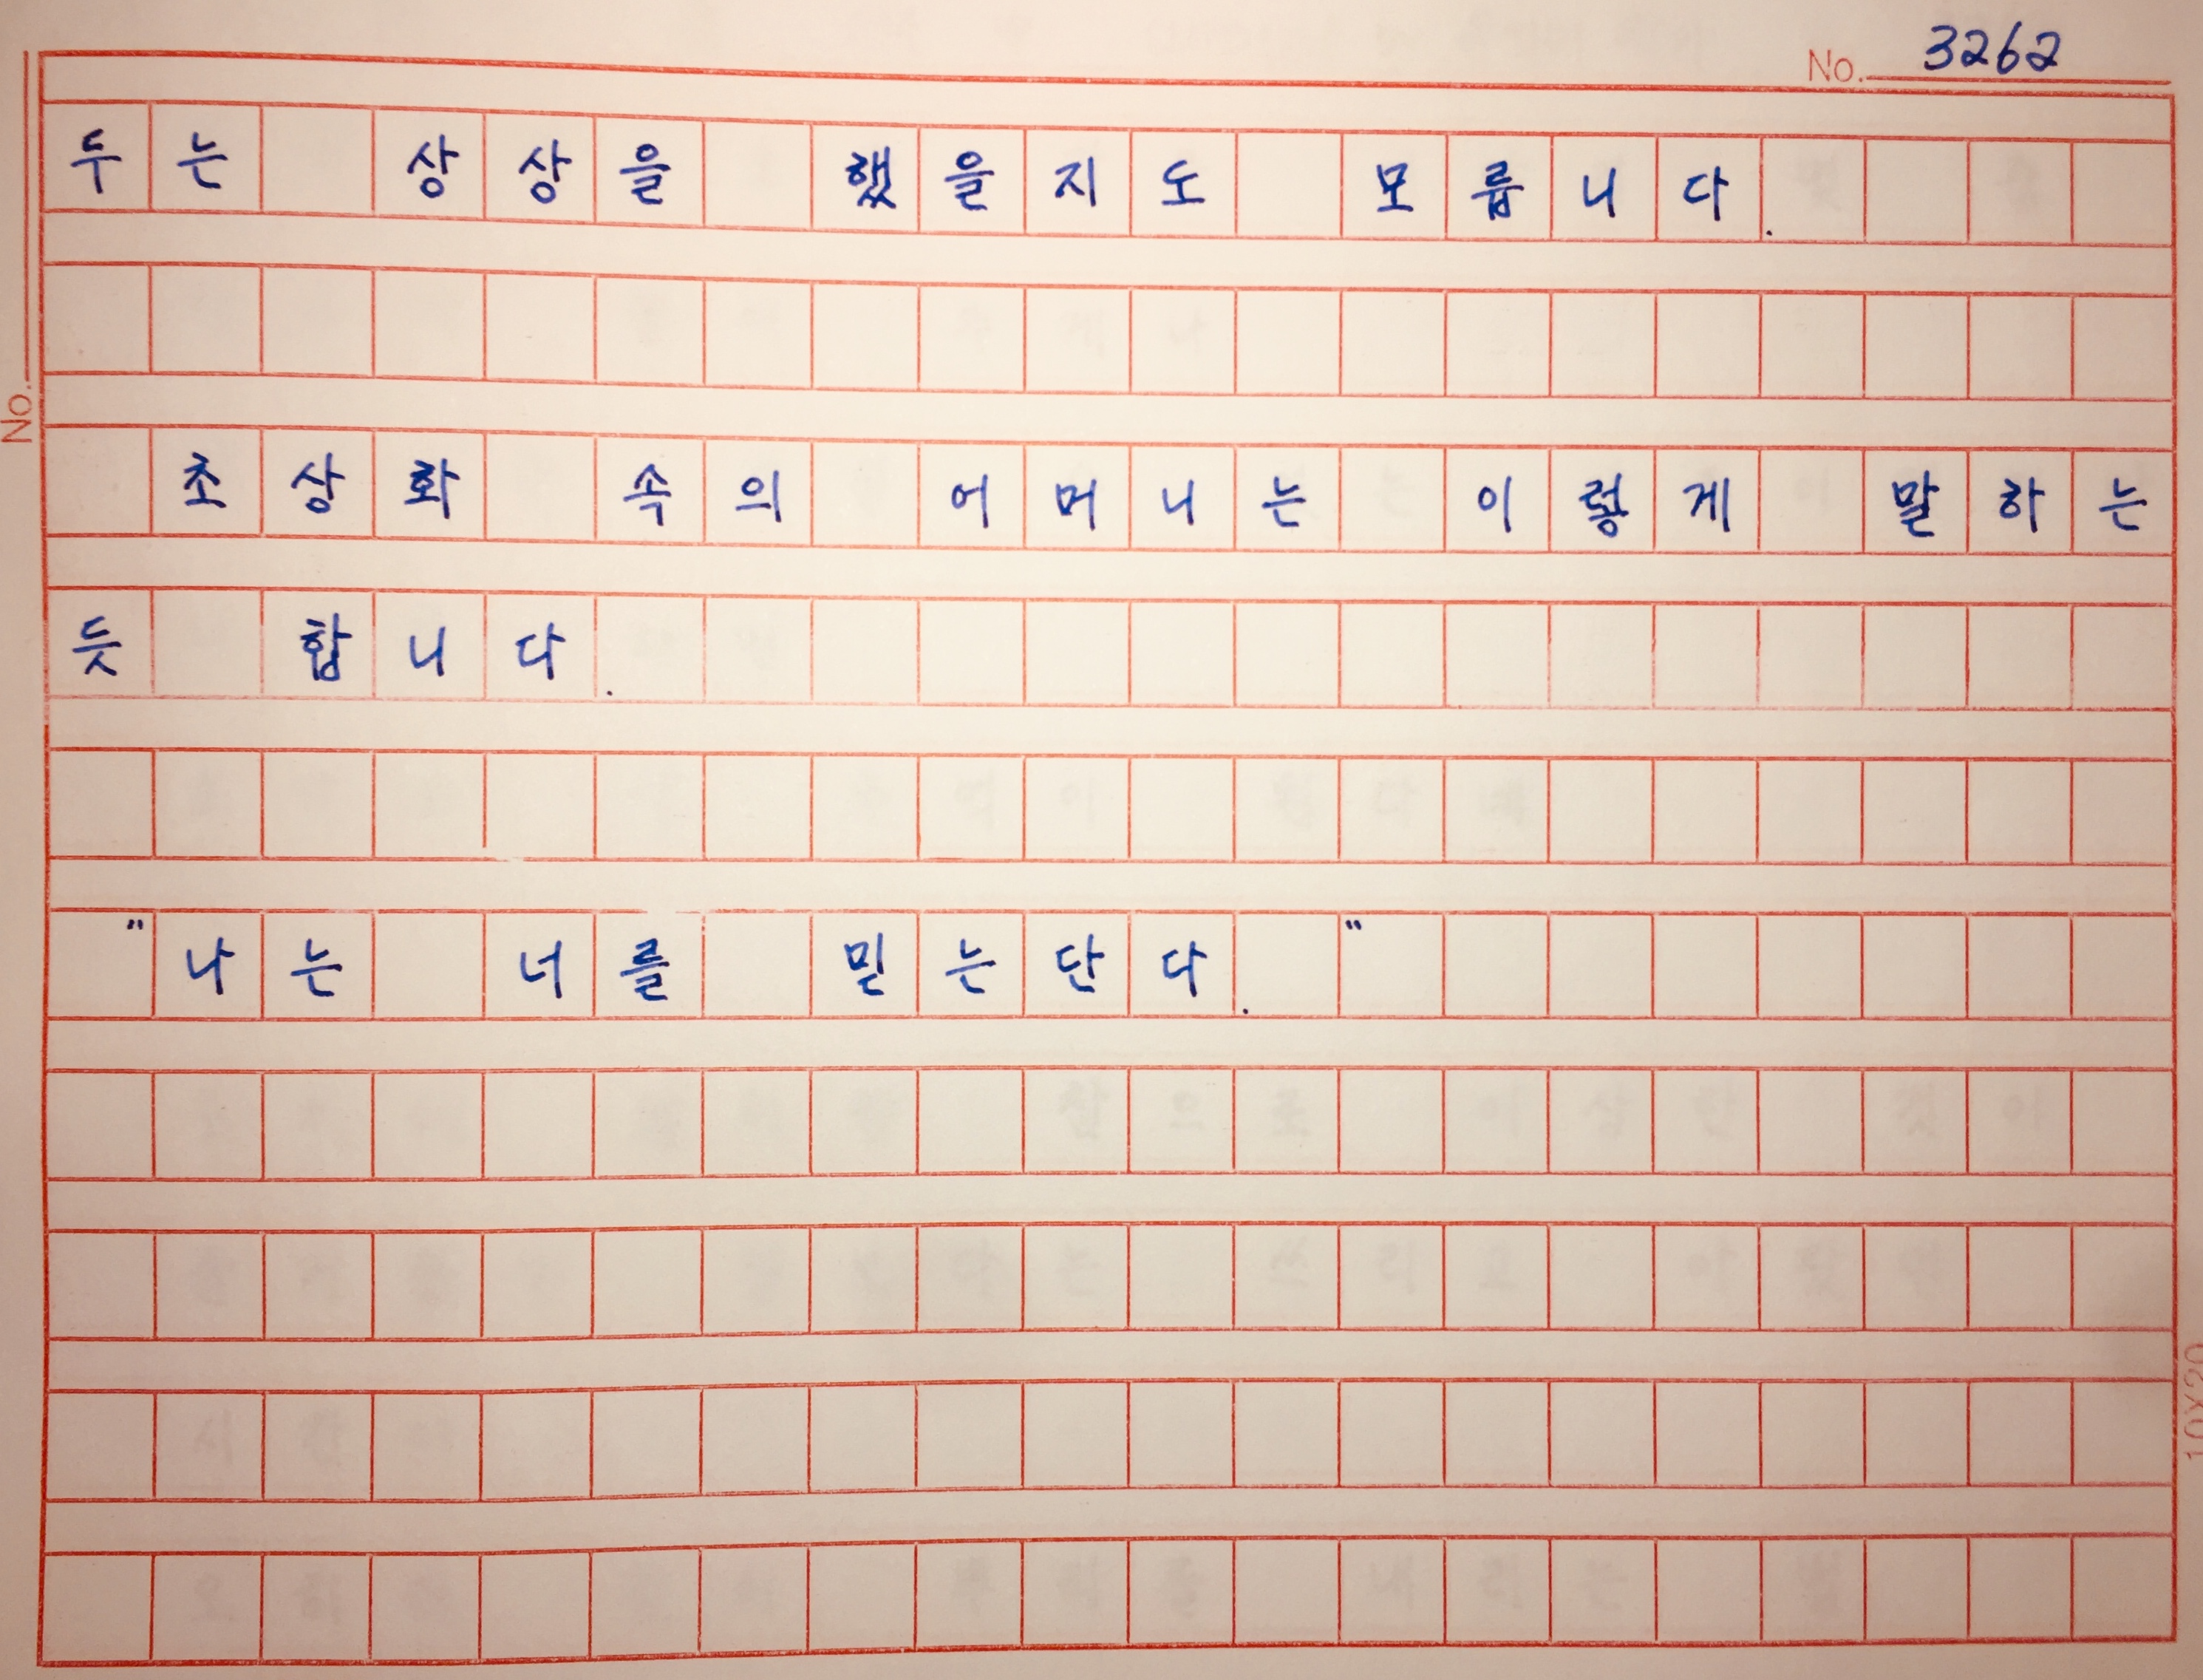 No. 3262
두는 상상을 했을지도 모릅니다.
No.
초상화 속의 어머니는 이렇게 말하는
듯 합니다.
"나는 너를 믿는단다."
10X20